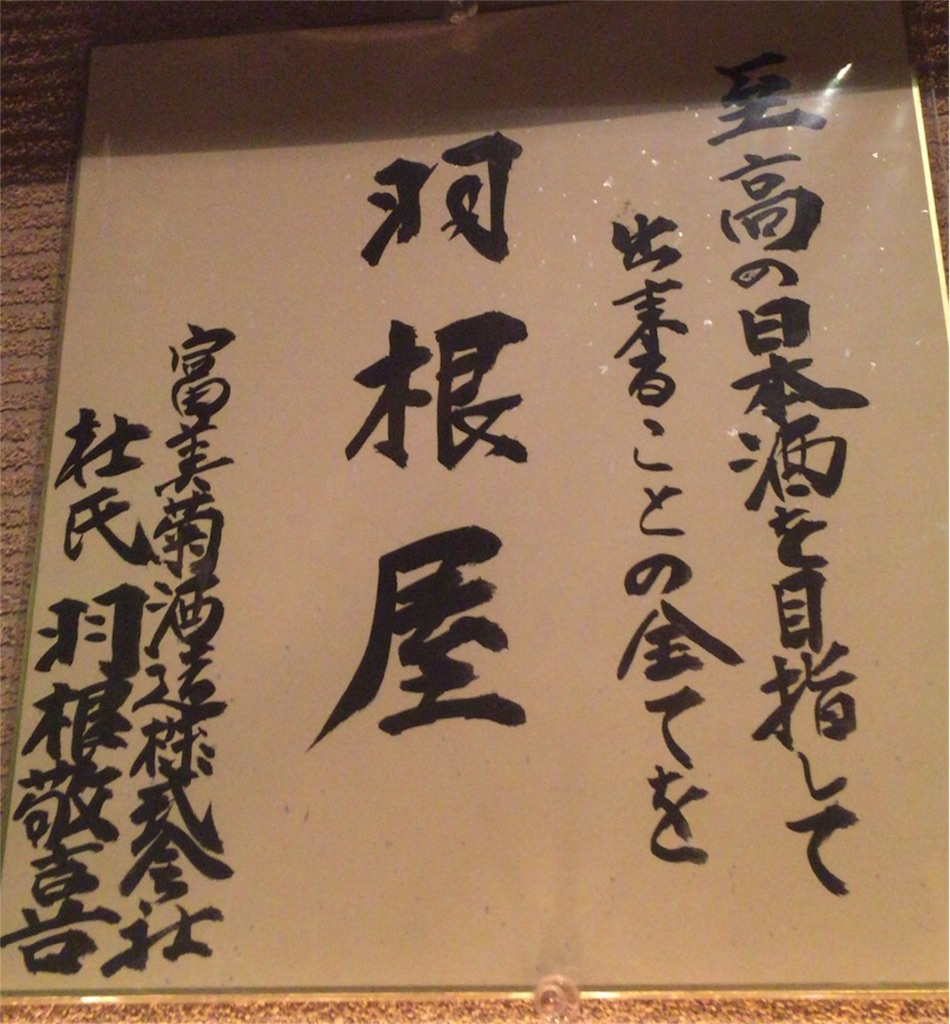 至高の日本酒を目指して
出来ることの全てを
羽根屋
富美菊酒造株式会社
杜氏 羽根敬喜